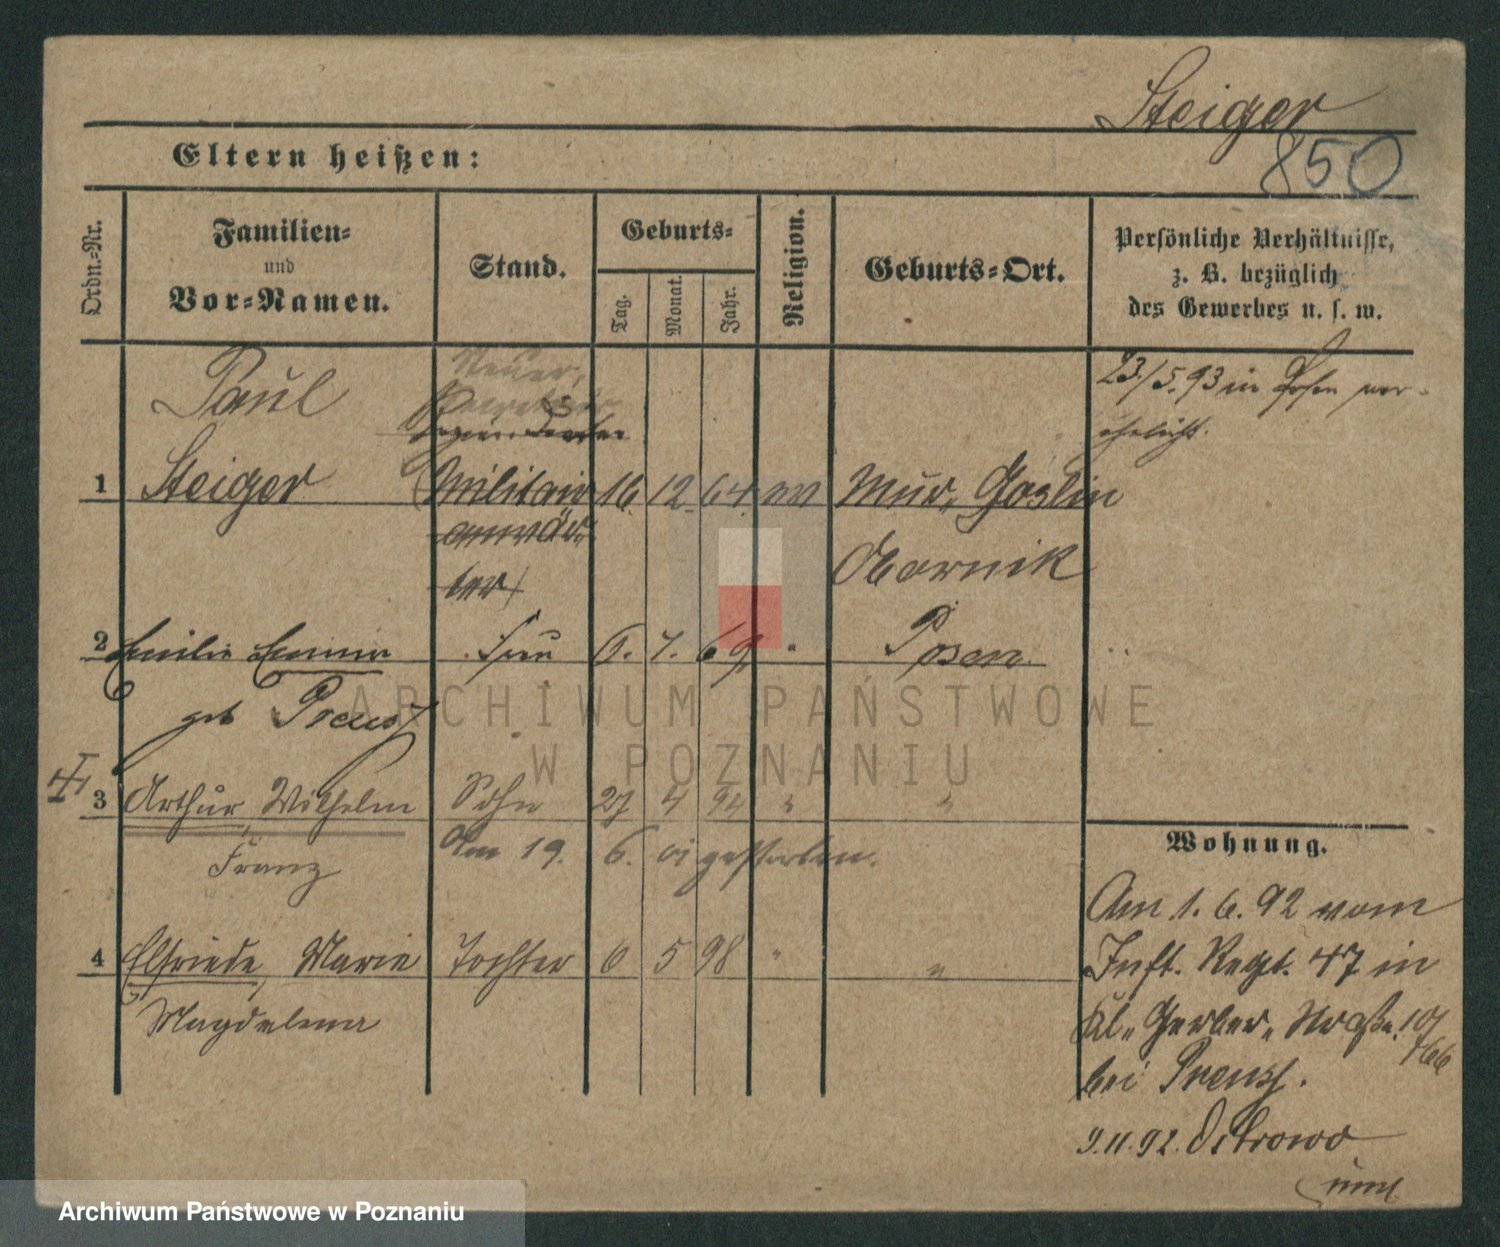 Steiger
850
Eltern heißen:
Ordn.-Nr.
Familien-
und
Vor-Namen.
Stand.
Geburts-
Tag.
Monat.
Jahr.
Religion.
Geburts-Ort.
Persönliche Verhältnisse,
z. B. bezüglich
des Gewerbes u. s. w.
Paul
Steuer,
23/5.93 in Posen ver-
ehelicht.
1 Steiger Militair 16. 12. 64. ev Mur. Goslin
anwär-
ter
Obornik
2 Emilie Emma Frau 6. 7. 69 " Posen
geb Preuss
3 Arthur, Wilhelm Sohn 27 4 94 " "
Franz
Am 19. 6. 01 gestorben.
4 Elfriede, Marie Tochter 6 5 98 " "
Magdalena
Wohnung.
Am 1. 6. 92 vom
Inft. Regt. 47 in
Kl. Gerber-Straße.
bei Preuss.
9.11.92. Ostrowo
ARCHIWUM PAŃSTWOWE
W POZNANIU
Archiwum Państwowe w Poznaniu